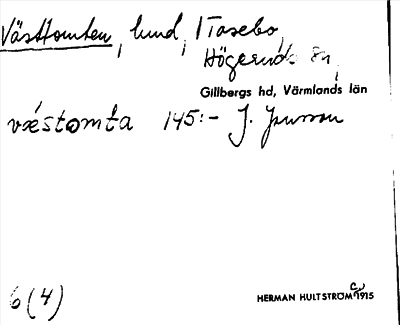 Västtomten, lund, 1 Tasebo,
Högeruds sn,
Gillbergs hd, Värmlands län
væstomta 145:- J. Jonsson
6(4)
HERMAN HULTSTRÖM C. 1915